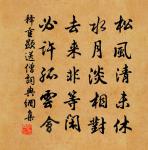 松風清未休
水月淡相對
去來非等閑
必許孤雲會
釋重顯送僧詞典網集